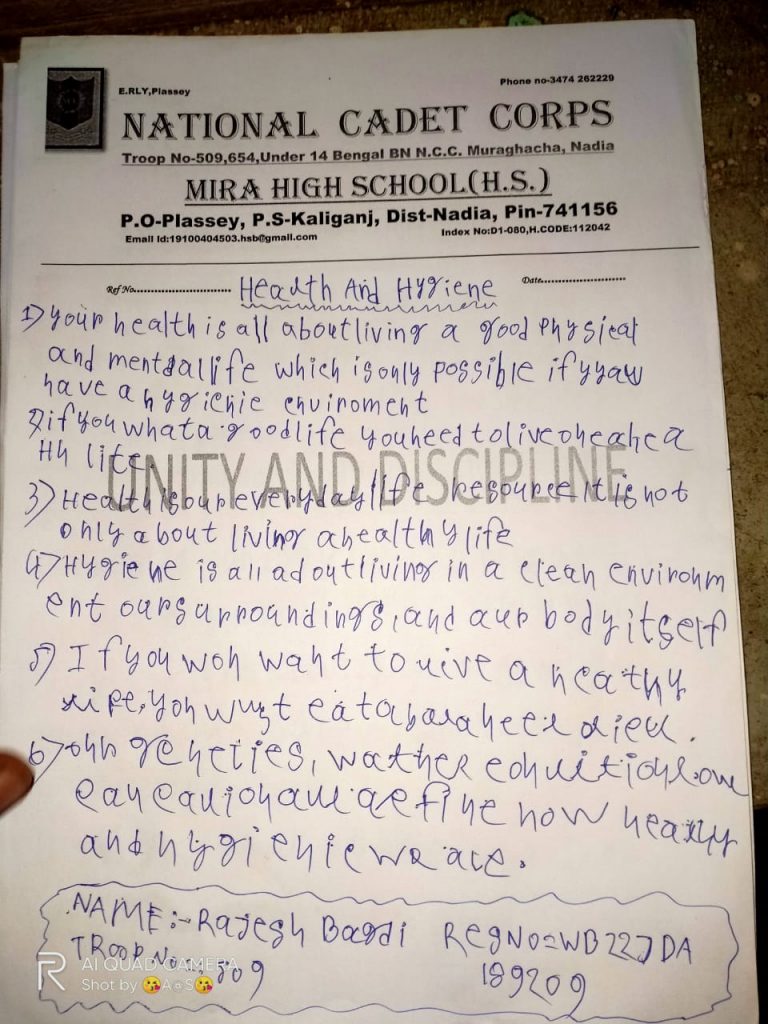 E.RLY,Plassey
Phone no-3474 262229
NATIONAL CADET CORPS
Troop No-509,654,Under 14 Bengal BN N.C.C. Muraghacha, Nadia
MIRA HIGH SCHOOL(H.S.)
P.O-Plassey, P.S-Kaliganj, Dist-Nadia, Pin-741156
Email Id:19100404503.hsb@gmail.com
Index No:D1-080,H.CODE:112042
Ref No.............................. Health And Hygiene Date..............................
1) your health is all about living a good physical
and mental life which is only possible if
have a hygienic enviroment
2) if you what a good life you need to live
life.
UNITY AND DISCIPLINE
3) Health is our everyday life resource It is not
only about living a healthy life
4) Hygiene is all adout living in a clean environm
ent our surroundings, and aur body itself
5) If you want to a
you must eat a
6) weather
define how
and hygienic we are.
NAME:- Rajesh Bagdi Reg No=WB22JDA
TROOP No 189209
AI QUAD CAMERA
Shot by 😘A♠S😘